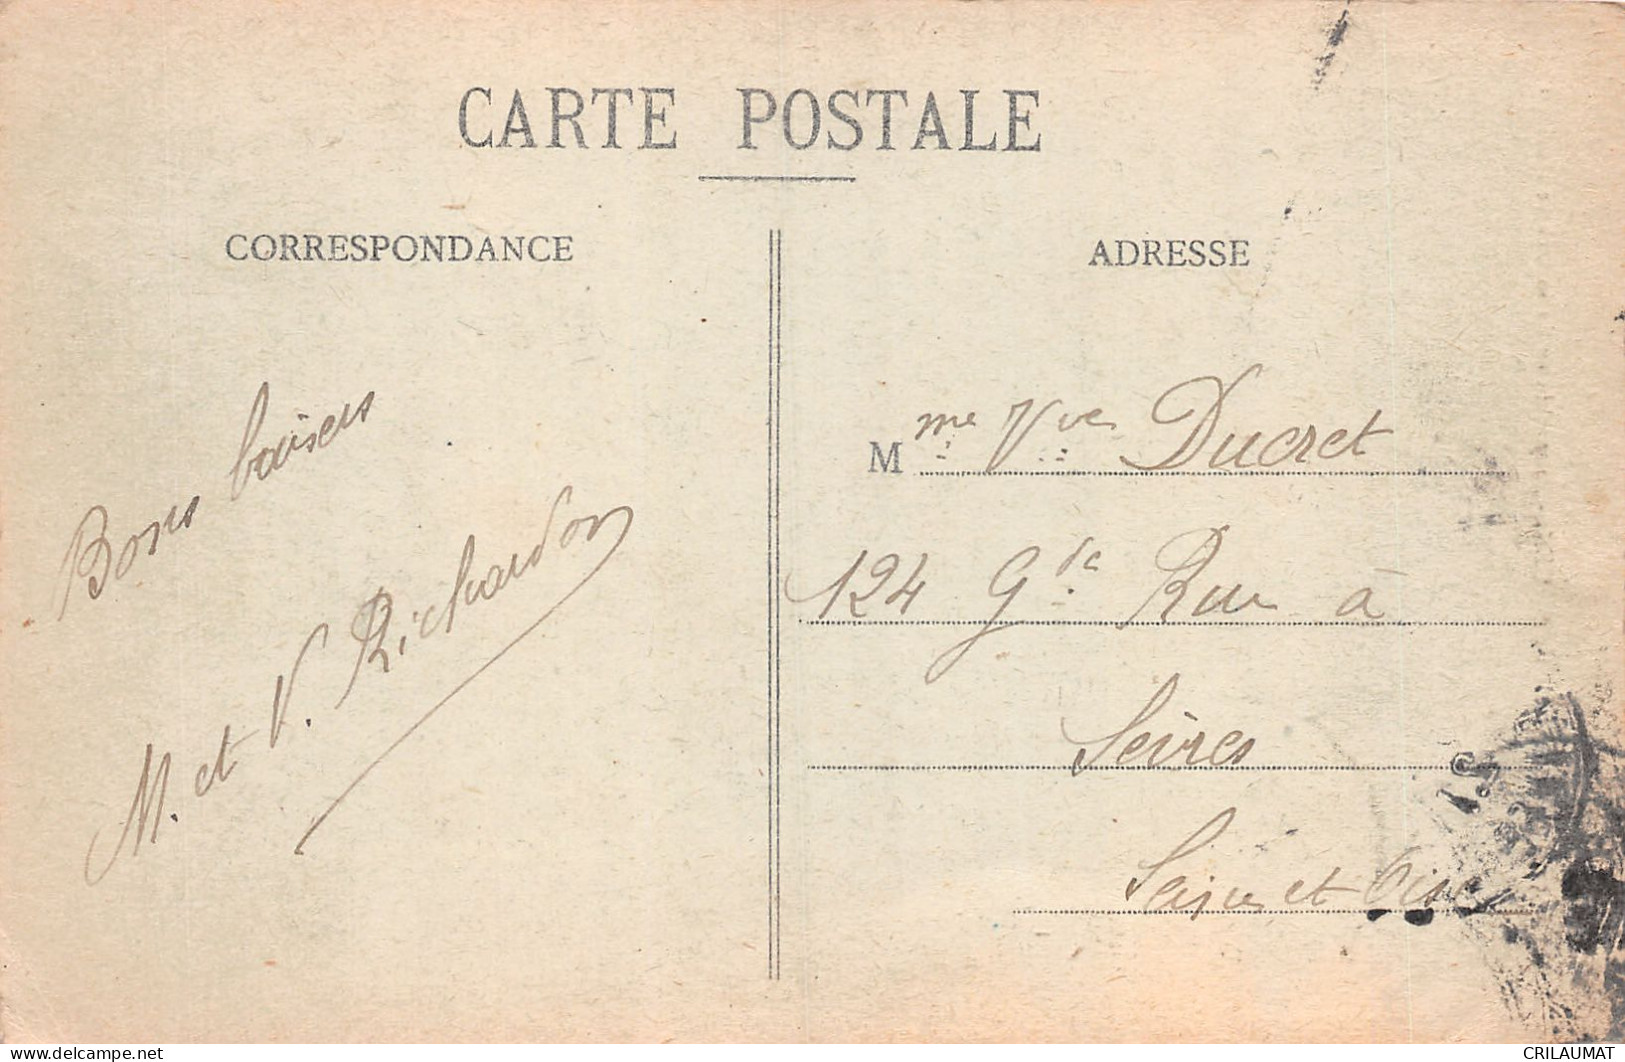 CARTE POSTALE
CORRESPONDANCE
ADRESSE
Bons baisers
M. et V. Richardon
Mme Vve Ducret
124 Gde Rue à
Sèvres
Seine et Oise
delcampe.net
CRILAUMAT